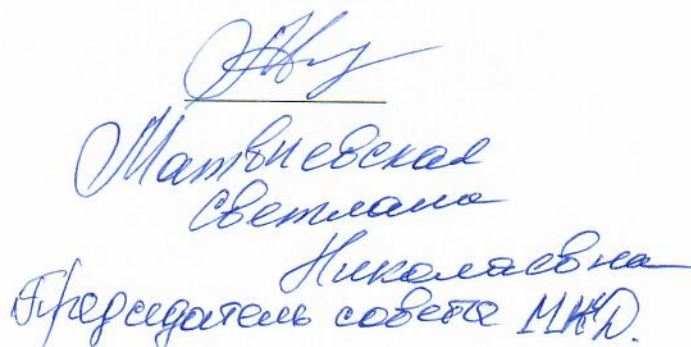 Матвиевская
Светлана
Николаевна
Председатель совета МКД.